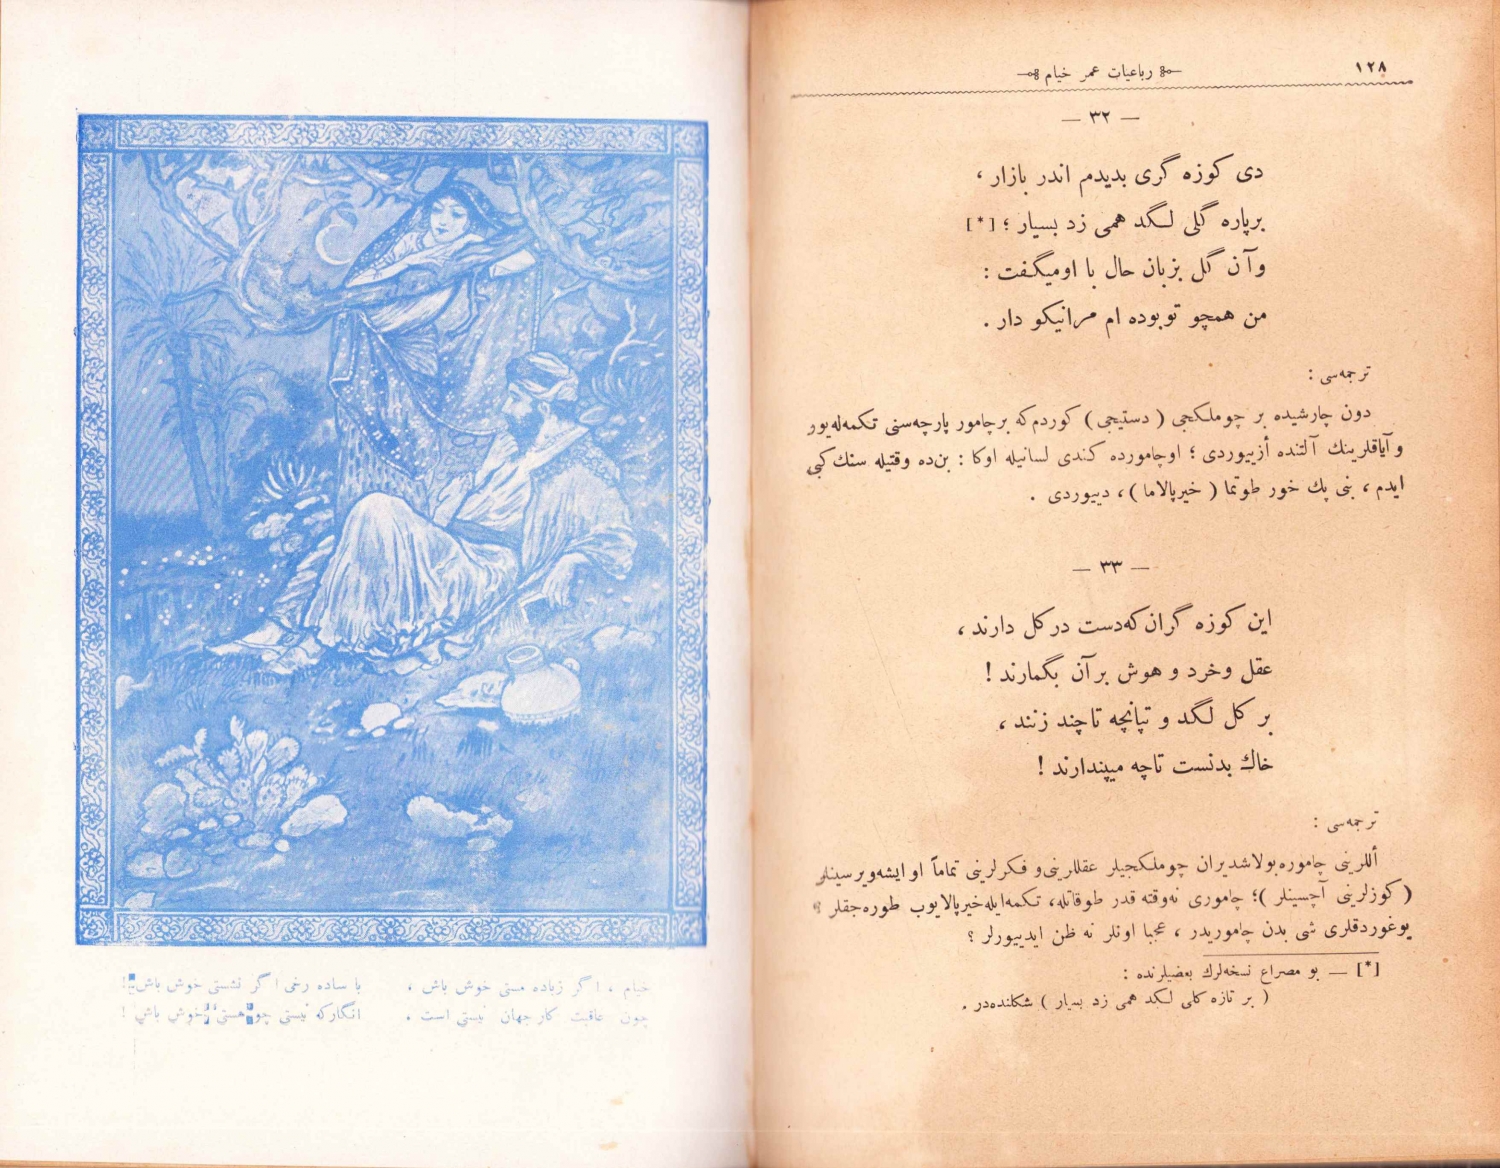 ١٢٨
رباعیات عمر خیام
— ٣٢ —
دی کوزه گری بدیدم اندر بازار ،
برپاره گلی لگد همی زد بسیار ؛ [*]
وآن گل بزبان حال با اومیگفت :
من همچو توبوده ام مرانیکو دار .
ترجمه‌سی :
دون چارشیده بر چوملکجی ( دستیجی ) کوردم‌که برچامور پارچه‌سنی تکمه‌له‌یور
و آیاقلرینك آلتنده أزییوردی ؛ اوچامورده کندی لسانیله اوکا : بن‌ده وقتیله سنك کبی
ایدم ، بنی پك خور طوتما ( خیرپالاما ) ، دییوردی .
— ٣٣ —
این کوزه گران که‌دست درکل دارند ،
عقل وخرد و هوش برآن بگمارند !
بر کل لگد و تپانچه تاچند زنند ،
خاك بدنست تاچه میپندارند !
ترجمه‌سی :
أللرینی چاموره‌بولاشدیران چوملکجیلر عقللرینی‌و فکرلرینی تماماً او ایشه‌ویرسینلر
( کوزلرینی آچسینلر )؛ چاموری نه‌وقته قدر طوقاتله، تکمه‌ایله‌خیرپالایوب طوره‌جقلر ؟
یوغوردقلری شی بدن چاموریدر ، عجبا اونلر نه ظن ایدییورلر ؟
[*] — بو مصراع نسخه‌لرك بعضیلرنده :
( بر تازه کلی لگد همی زد بسیار ) شکلنده‌در .
خیام ، اگر زباده مستی خوش باش ، با ساده رخی اگر نشستی خوش باش !
چون عاقبت کارجهان نیستی است . انگارکه نیستی چو هستی خوش باش !